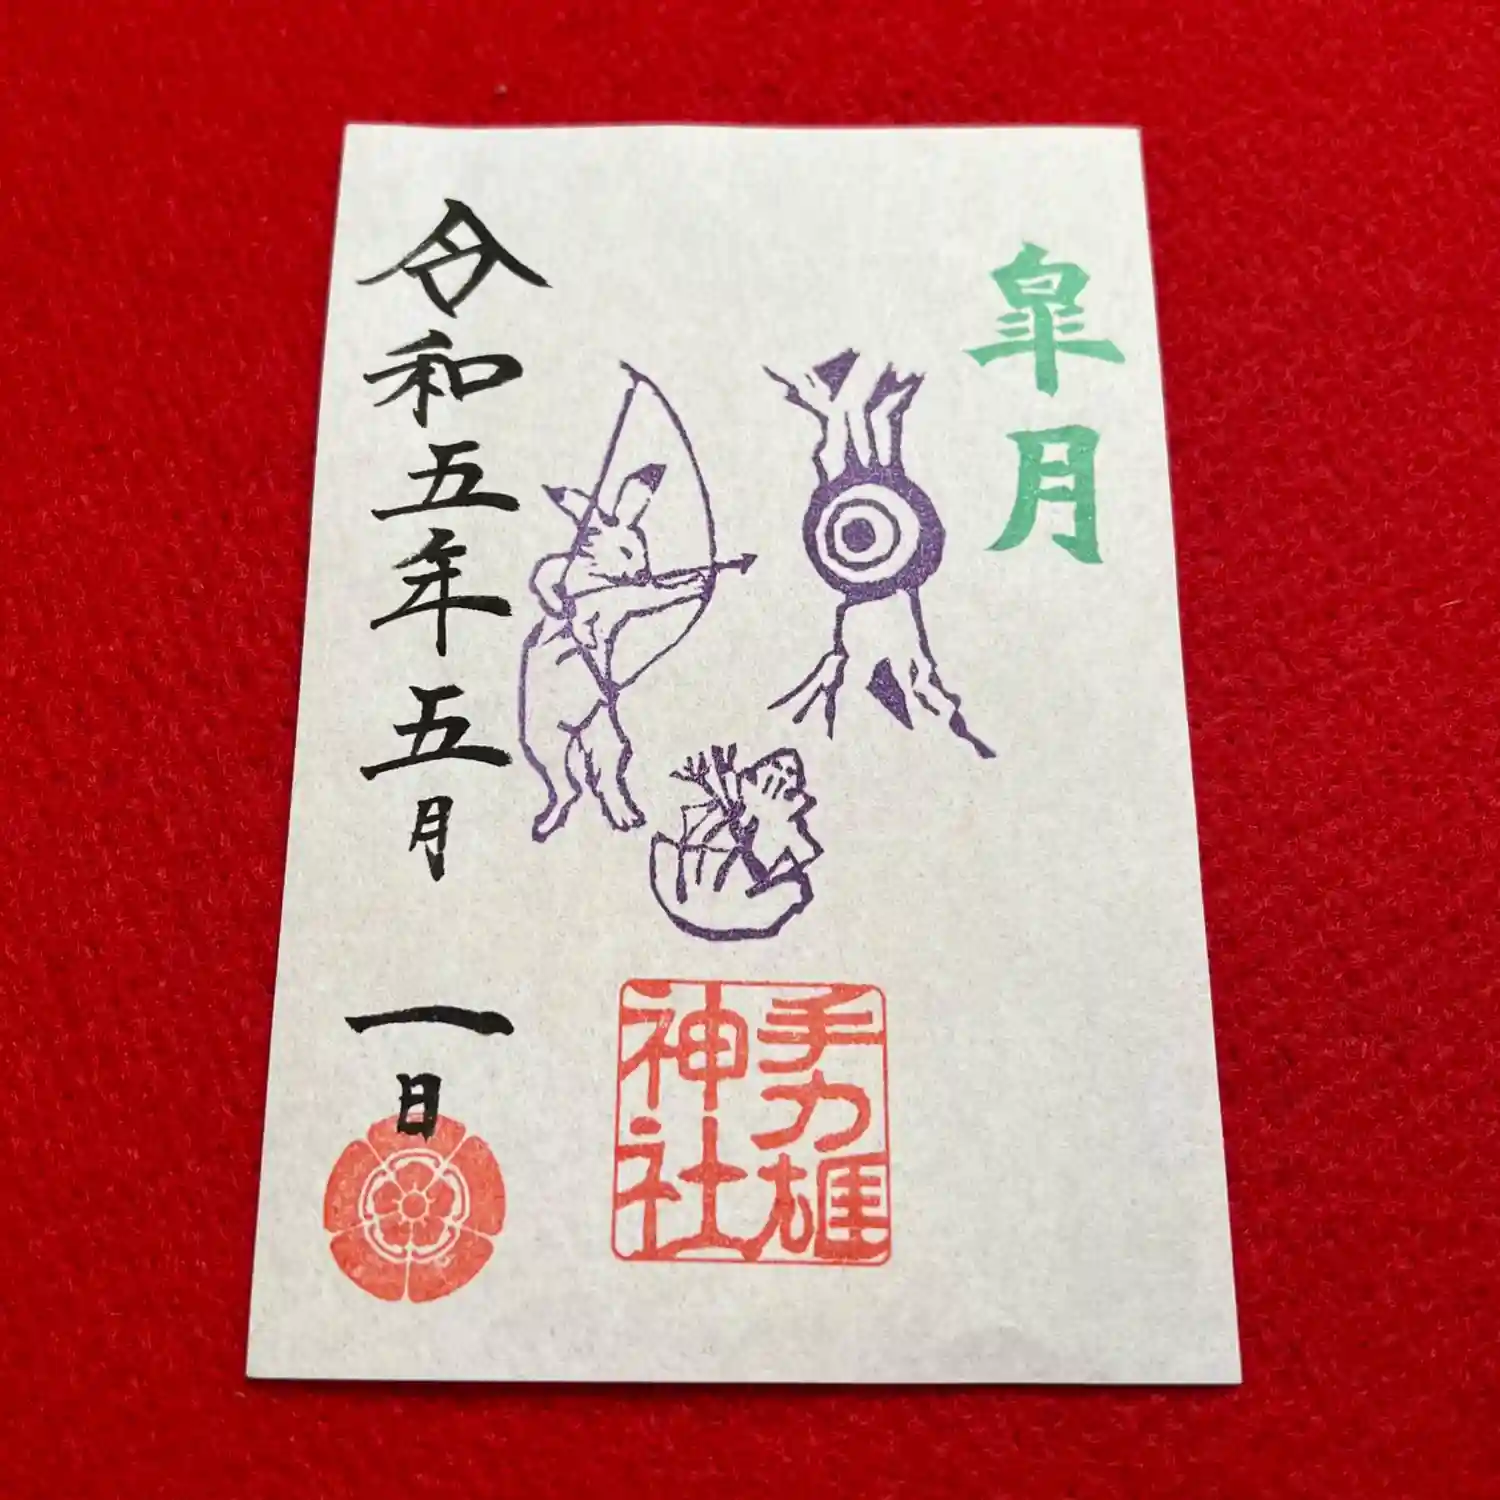 皐月
手力雄
神社
令和五年五月一日